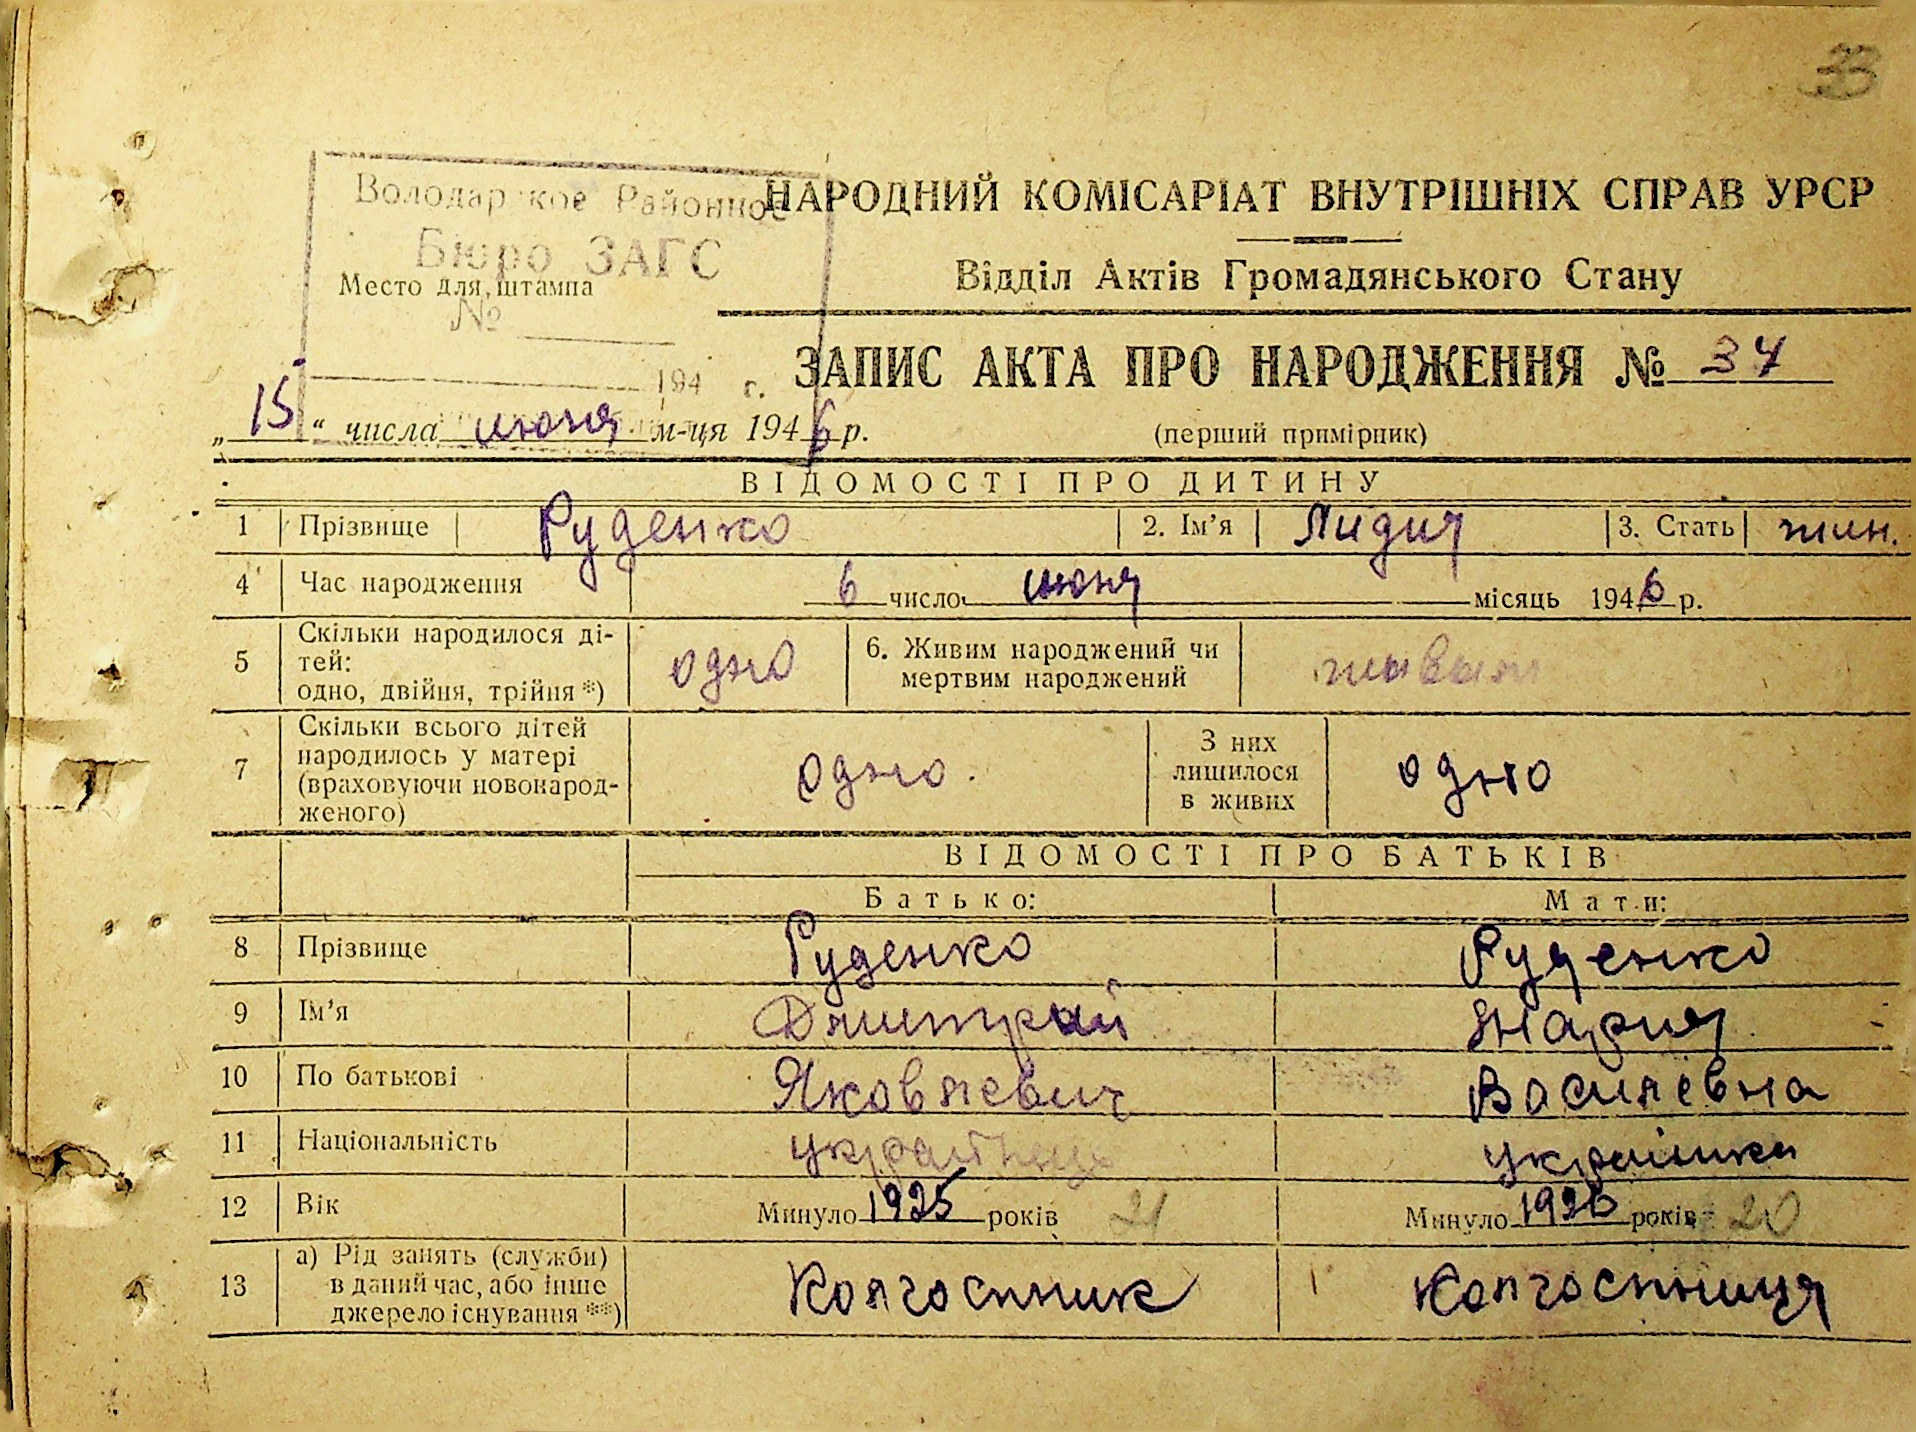 33
Володарское Районное
НАРОДНИЙ КОМІСАРІАТ ВНУТРІШНІХ СПРАВ УРСР
Бюро ЗАГС
Место для штампа
№
Відділ Актів Громадянського Стану
ЗАПИС АКТА ПРО НАРОДЖЕННЯ № 37
194 г.
„15“ числа июня м-ця 1946 р.
(перший примірник)
ВІДОМОСТІ ПРО ДИТИНУ
1 Прізвище Руденко 2. Ім’я Лидия 3. Стать жин.
4 Час народження 6 число июня місяць 1946 р.
5 Скільки народилося ді-
тей:
одно, двійня, трійня *) одно 6. Живим народжений чи
мертвим народжений живым
7 Скільки всього дітей
народилось у матері
(враховуючи новонарод-
женого) одно. З них
лишилося
в живих одно
ВІДОМОСТІ ПРО БАТЬКІВ
Батько: Мати:
8 Прізвище Руденко Руденко
9 Ім’я Дмитрий Мария
10 По батькові Яковлевич Василевна
11 Національність українец українка
12 Вік Минуло 1925 років 21 Минуло 1926 років 20
13 а) Рід занять (служби)
в даний час, або інше
джерело існування **) Колгоспник Колгоспниця